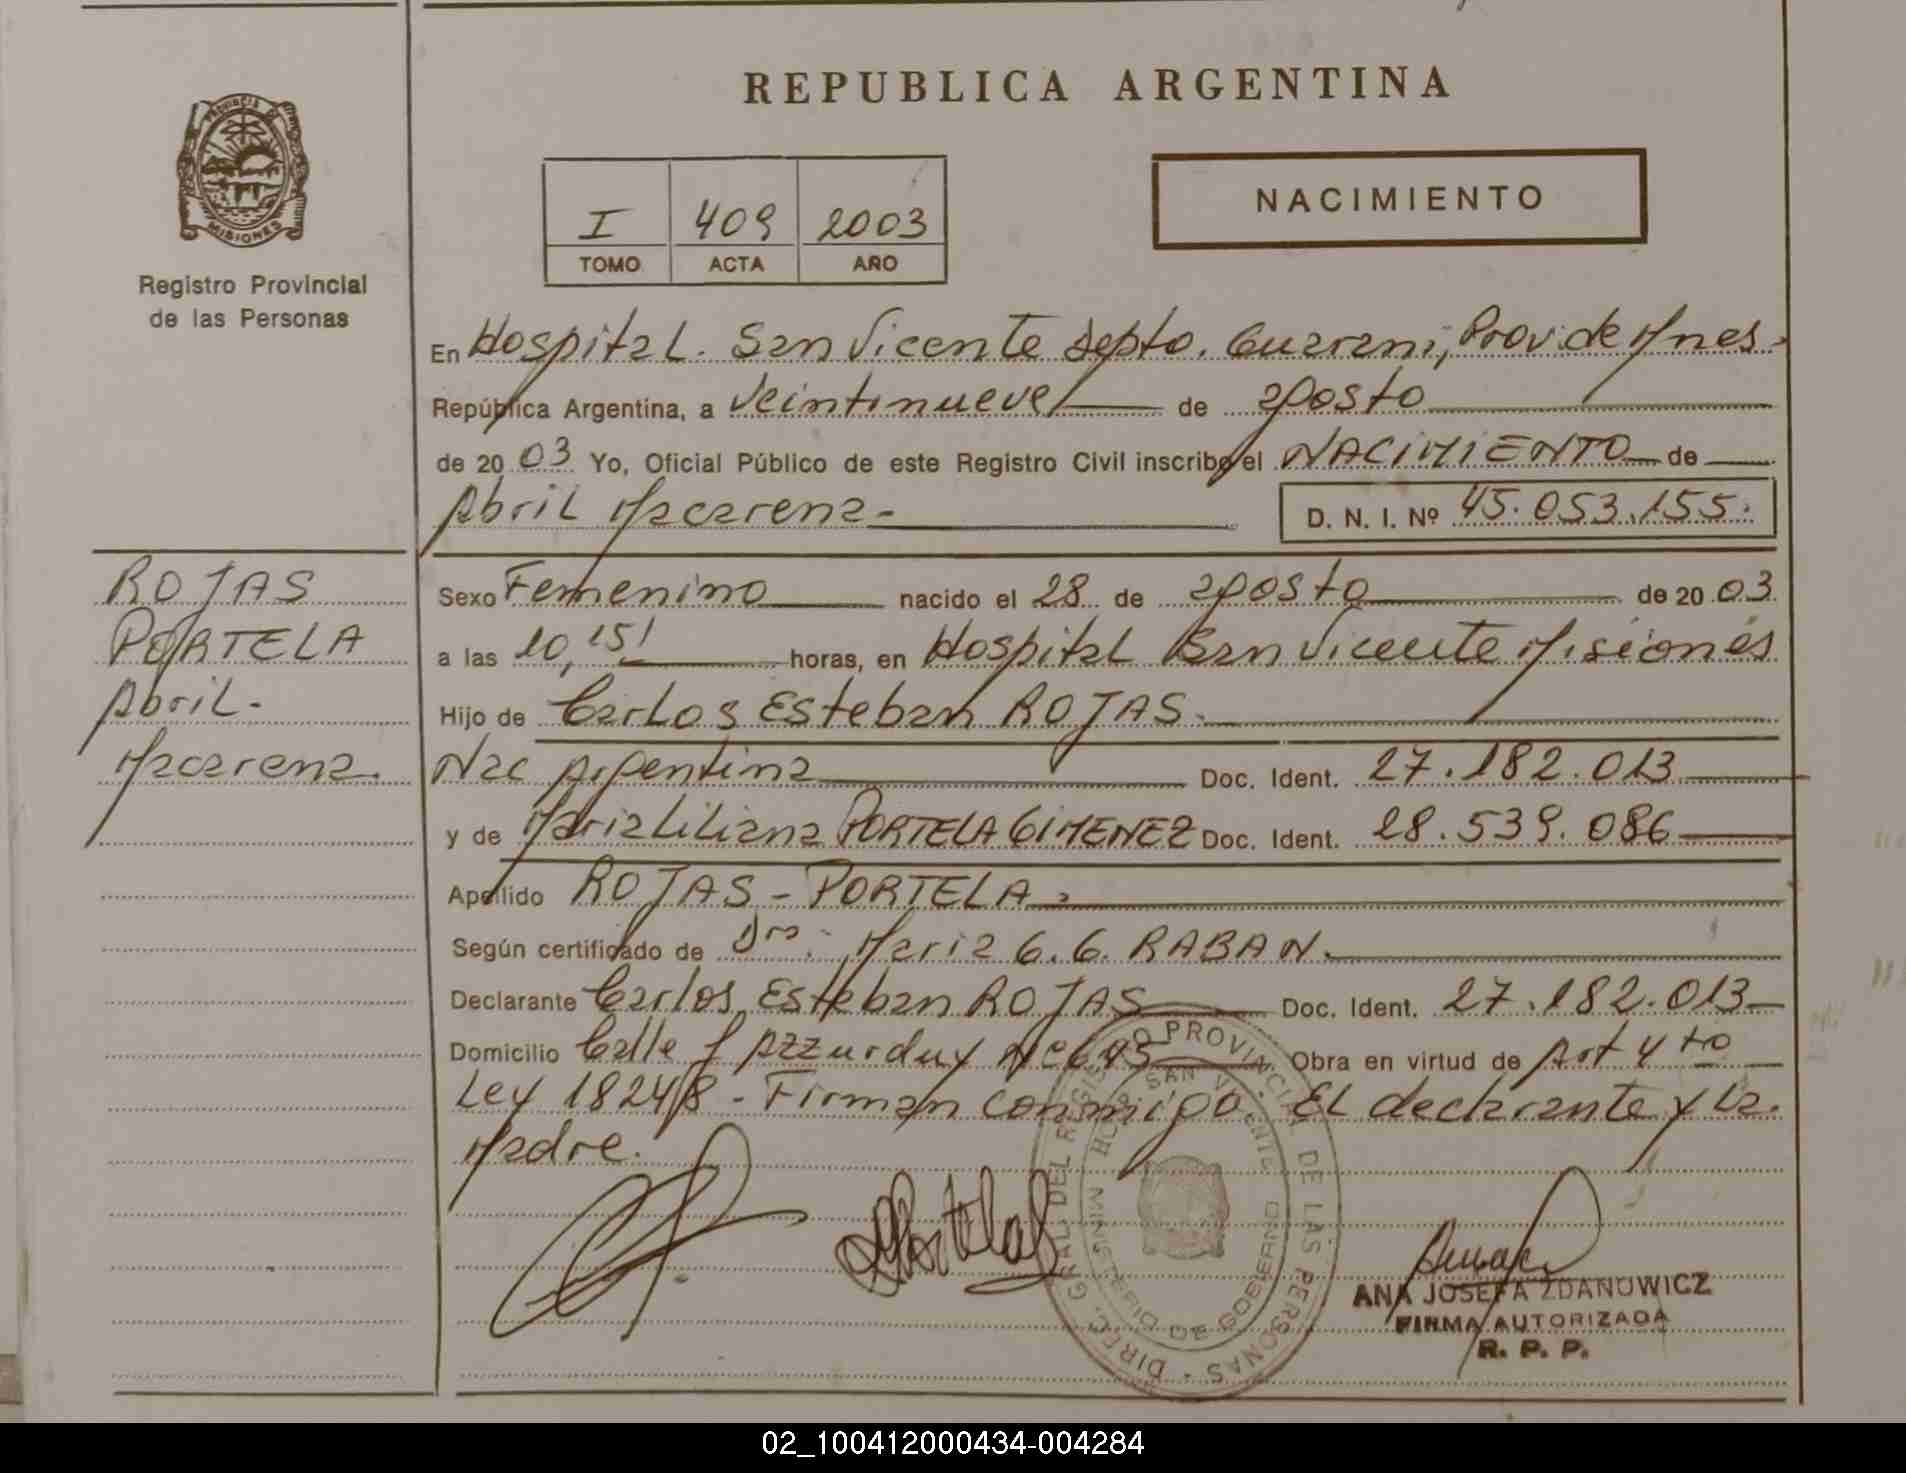 REPUBLICA ARGENTINA
PROVINCIA DE
MISIONES
Registro Provincial
de las Personas
I 409 2003
TOMO ACTA AÑO
NACIMIENTO
En Hospital. San Vicente Depto. Guarani, Prov. de Mnes.
República Argentina, a Veintinueve de agosto
de 2003 Yo, Oficial Público de este Registro Civil inscribo el NACIMIENTO de
Abril Macarena-
D. N. I. Nº 45.053.155.
ROJAS
PORTELA
Abril.
Macarena.
Sexo Femenino nacido el 28 de agosto de 2003
a las 10,15 horas, en Hospital San Vicente Misiones
Hijo de Carlos Esteban ROJAS.
Nac Argentina Doc. Ident. 27.182.013
y de Maria Liliana PORTELA GIMENEZ Doc. Ident. 28.539.086
Apellido ROJAS - PORTELA.
Según certificado de Dra. Maria G. G. RABAN.
Declarante Carlos Esteban ROJAS Doc. Ident. 27.182.013
Domicilio Calle J Azzurduy Obra en virtud de Art 4to
Ley 18248 - Firman conmigo. El declarante y La.
Madre.
DIREC. GRAL. DEL REGISTRO PROVINCIAL DE LAS PERSONAS
MINISTERIO DE GOBIERNO
SAN VICENTE
ANA JOSEFA ZDANOWICZ
FIRMA AUTORIZADA
R. P. P.
02_100412000434-004284